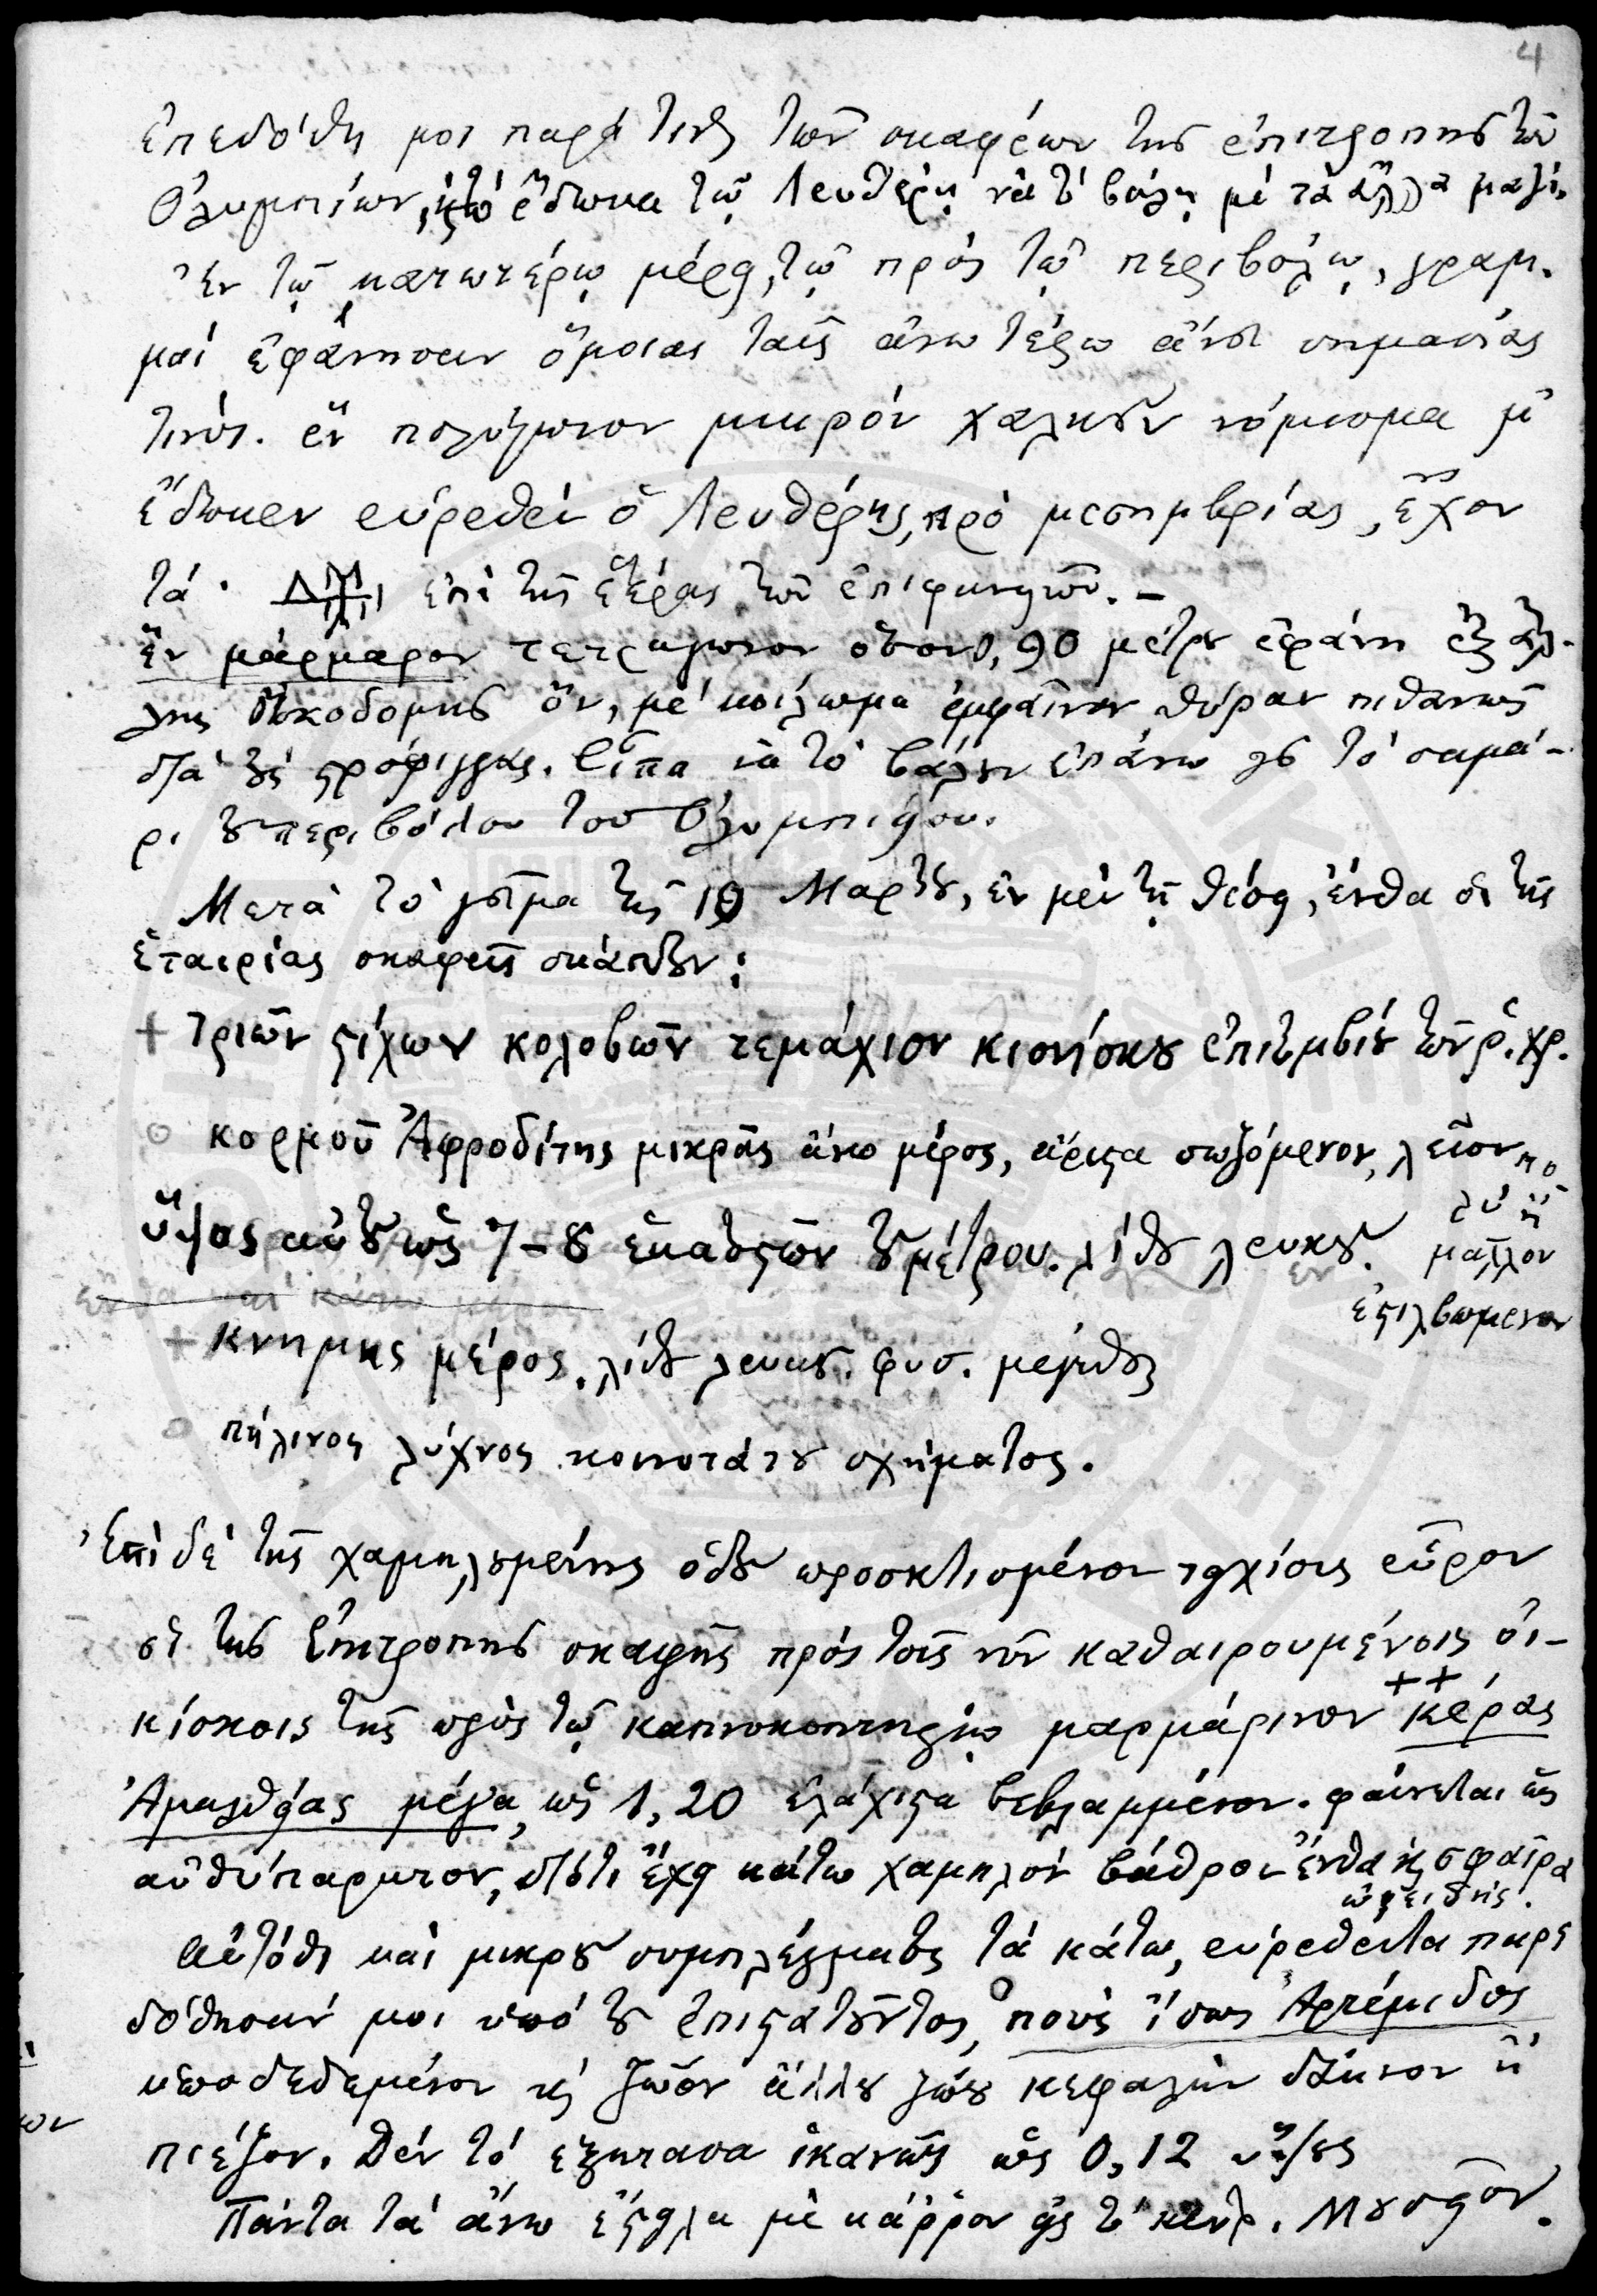 4
ἐπεδόθη μοι παρά τινος τῶν σκαφέων τῆς ἐπιτροπῆς τῶν
Ὀλυμπίων, κ τὸ ἔδωκα τῷ Λευθέρῃ νὰ τὸ βάλῃ μὲ τὰ ἄλλα μαζί.
Ἐν τῷ κατωτέρῳ μέρει, τῷ πρὸς τῷ περιβόλῳ, γραμ-
μαὶ ἐφάνησαν ὅμοιαι ταῖς ἀνωτέρω ἄνευ σημασίας
τινός. ἓν πολύγωνον μικρόν χαλκοῦν νόμισμα μ
ἔδωκεν εὑρεθὲν ὁ Λευθέρης, πρὸ μεσημβρίας, ἔχον
τὰ · ἐπὶ τῆς ἑτέρας τῶν ἐπιφανειῶν. –
Ἓν μάρμαρον τετράγωνον ὅσον 0,90 μέτρου ἐφάνη ἐξ ἄλ-
λης οἰκοδομῆς ὄν, μὲ κοίλωμα ἐμφαῖνον θύραν πιθανῶς
διὰ τοὺς στρόφιγγας. Εἶπα νὰ τὸ βάλουν ἐπάνω εἰς τὸ σαμά-
ρι τοῦ περιβόλου τοῦ Ὀλυμπιείου.
Μετὰ τὸ γεῦμα τῆς 19 Μαρτίου, ἐν μὲν τῇ θέσει, ἔνθα οἱ τῆς
ἑταιρίας σκαφεῖς σκάπτουν:
+ τριῶν στίχων κολοβῶν τεμάχιον κιονίσκου ἐπιτυμβίου τῶν ρ. χρ.
ο κορμοῦ Ἀφροδίτης μικρᾶς ἄνω μέρος, ἄριστα σωζόμενον, λεῖον πο
λὺ ἢ
μᾶλλον
ἐστιλβωμένον
ὕψος αὐτοῦ ὡς 7–8 ἑκατοστῶν τοῦ μέτρου. λίθου λευκοῦ.
+ κνήμης μέρος. λίθου λευκοῦ. φυσ. μεγέθους
ο πήλινος λύχνος κοινοτάτου σχήματος.
Ἐπὶ δὲ τῆς χαμηλουμένης ὁδοῦ προσκτισμένον τειχίοις εὗρον
οἱ τῆς Ἐπιτροπῆς σκαφεῖς πρὸς τοῖς νῦν καθαιρουμένοις οἰ-
κίσκοις τῆς πρὸς τῷ καπνοκοπτηρίῳ μαρμάρινον ++ κέρας
Ἀμαλθείας μέγα, ὡς 1,20 ἐλάχιστα βεβλαμμένον. φαίνεται ὡς
αὐθύπαρκτον, διότι ἔχει κάτω χαμηλὸν βάθρον ἔνθα κ σφαῖρα
ὠοειδής.
Αὐτόθι καὶ μικροῦ συμπλέγματος τὰ κάτω, εὑρεθέντα παρε
δόθησάν μοι ὑπὸ τοῦ ἐπιστατοῦντος, ο ποὺς ἴσως Ἀρτέμιδος
ὑποδεδεμένον κ ζῷον ἄλλου ζῴου κεφαλὴν δάκνον ἢ
πιέζον. Δὲν τὸ ἐξήτασα ἱκανῶς ὡς 0,12 ὕψους
Πάντα τὰ ἄνω ἔστειλα μὲ κάρρον εἰς τὸ κεντρ. Μουσεῖον.